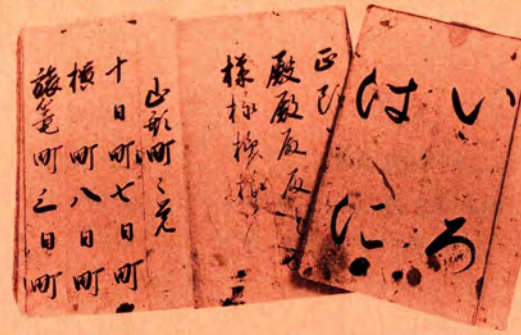 いろ
はに
殿殿殿殿
様様様様
山形町々覚
十日町七日町
横町八日町
旅篭町三日町